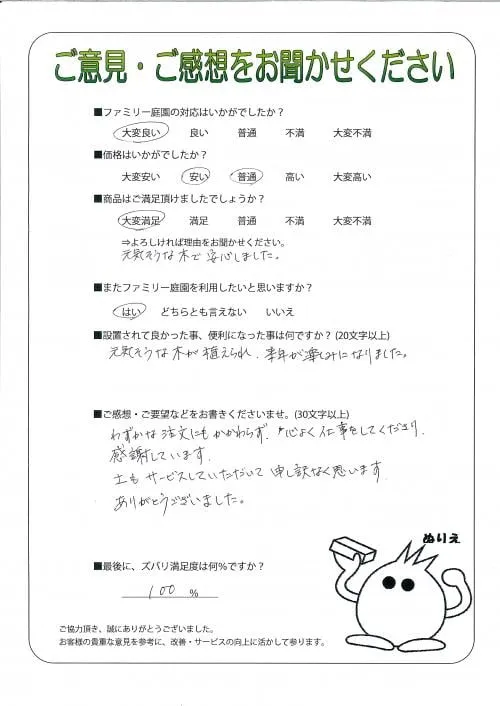 ご意見・ご感想をお聞かせください
■ファミリー庭園の対応はいかがでしたか？
大変良い 良い 普通 不満 大変不満
■価格はいかがでしたか？
大変安い 安い 普通 高い 大変高い
■商品はご満足頂けましたでしょうか？
大変満足 満足 普通 不満 大変不満
⇒よろしければ理由をお聞かせください。
元気そうな木で安心しました。
■またファミリー庭園を利用したいと思いますか？
はい どちらとも言えない いいえ
■設置されて良かった事、便利になった事は何ですか？(20文字以上)
元気そうな木が植えられ、来年が楽しみになりました。
■ご感想・ご要望などをお書きくださいませ。(30文字以上)
わずかな注文にもかかわらず、心よく仕事をしてくださり、
感謝しています。
土もサービスしていただいて申し訳なく思います
ありがとうございました。
ぬりえ
■最後に、ズバリ満足度は何％ですか？
100 ％
ご協力頂き、誠にありがとうございました。
お客様の貴重な意見を参考に、改善・サービスの向上に活かして参ります。